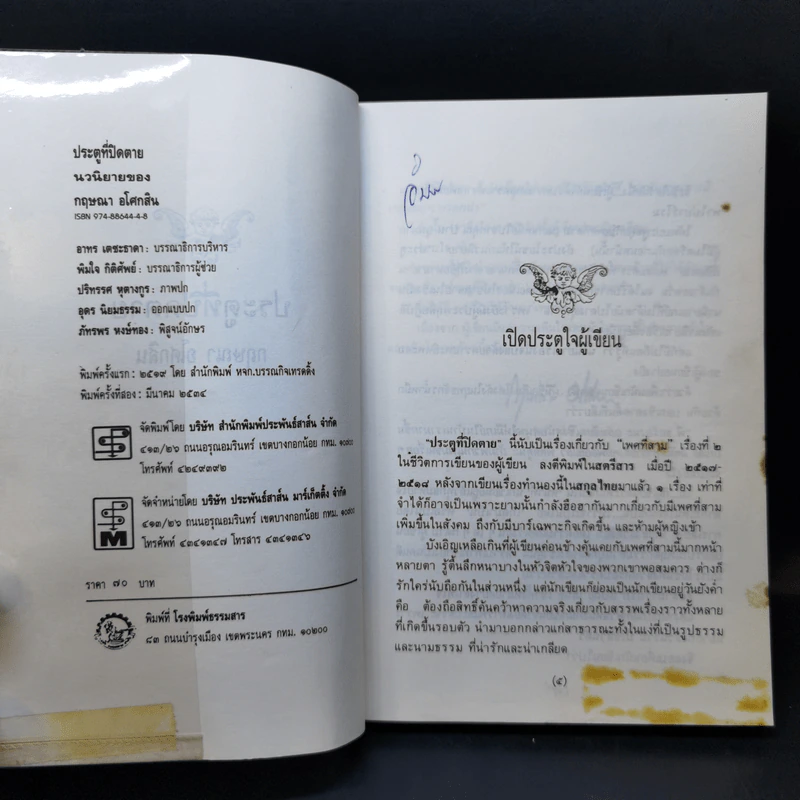 ประตูที่ปิดตาย
นวนิยายของ
กฤษณา อโศกสิน
ISBN 974-88644-4-8
อาทร เตชะธาดา : บรรณาธิการบริหาร
พิมใจ กิติศัพย์ : บรรณาธิการผู้ช่วย
ปริทรรศ หุตางกูร : ภาพปก
อุดร นิยมธรรม : ออกแบบปก
ภัทรพร หงษ์ทอง : พิสูจน์อักษร
พิมพ์ครั้งแรก : ๒๕๑๙ โดย สำนักพิมพ์ หจก.บรรณกิจเทรดดิ้ง
พิมพ์ครั้งที่สอง : มีนาคม ๒๕๓๔
จัดพิมพ์โดย บริษัท สำนักพิมพ์ประพันธ์สาส์น จำกัด
๔๑๓/๒๖ ถนนอรุณอมรินทร์ เขตบางกอกน้อย กทม. ๑๐๗๐๐
โทรศัพท์ ๔๒๔๙๓๙๒
จัดจำหน่ายโดย บริษัท ประพันธ์สาส์น มาร์เก็ตติ้ง จำกัด
๔๑๓/๒๖ ถนนอรุณอมรินทร์ เขตบางกอกน้อย กทม. ๑๐๗๐๐
โทรศัพท์ ๔๓๔๑๓๔๗ โทรสาร ๔๓๔๑๓๔๖
ราคา ๗๐ บาท
พิมพ์ที่ โรงพิมพ์ธรรมสาร
๘๓ ถนนบำรุงเมือง เขตพระนคร กทม. ๑๐๒๐๐
เปิดประตูใจผู้เขียน
"ประตูที่ปิดตาย" นี้นับเป็นเรื่องเกี่ยวกับ "เพศที่สาม" เรื่องที่ ๒
ในชีวิตการเขียนของผู้เขียน ลงตีพิมพ์ในสตรีสาร เมื่อปี ๒๕๑๗-
๒๕๑๘ หลังจากเขียนเรื่องทำนองนี้ในสกุลไทยมาแล้ว ๑ เรื่อง เท่าที่
จำได้ก็อาจเป็นเพราะยามนั้นกำลังฮือฮากันมากเกี่ยวกับมีเพศที่สาม
เพิ่มขึ้นในสังคม ถึงกับมีบาร์เฉพาะกิจเกิดขึ้น และห้ามผู้หญิงเข้า
บังเอิญเหลือเกินที่ผู้เขียนค่อนข้างคุ้นเคยกับเพศที่สามนี้มากหน้า
หลายตา รู้ตื้นลึกหนาบางในหัวจิตหัวใจของพวกเขาพอสมควร ต่างก็
รักใคร่นับถือกันในส่วนหนึ่ง แต่นักเขียนก็ย่อมเป็นนักเขียนอยู่วันยังค่ำ
คือ ต้องถือสิทธิ์ค้นคว้าหาความจริงเกี่ยวกับสรรพเรื่องราวทั้งหลาย
ที่เกิดขึ้นรอบตัว นำมาบอกกล่าวแก่สาธารณะทั้งในแง่ที่เป็นรูปธรรม
และนามธรรม ที่น่ารักและน่าเกลียด
(๕)